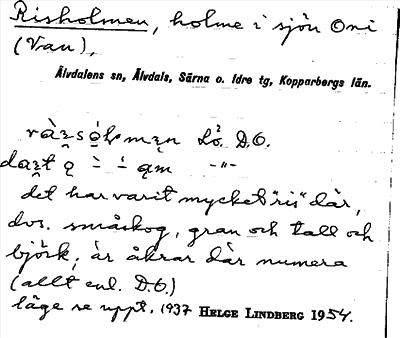 Risholmen, holme i sjön Oni
(Van),
Älvdalens sn, Älvdals, Särna o. Idre tg, Kopparbergs län.
D.O.
det har varit mycket "ris" där,
dvs. småskog, gran och tall och
björk; är åkrar där numera
(allt enl. D.O.)
läge se uppt. 1937 HELGE LINDBERG 1954.